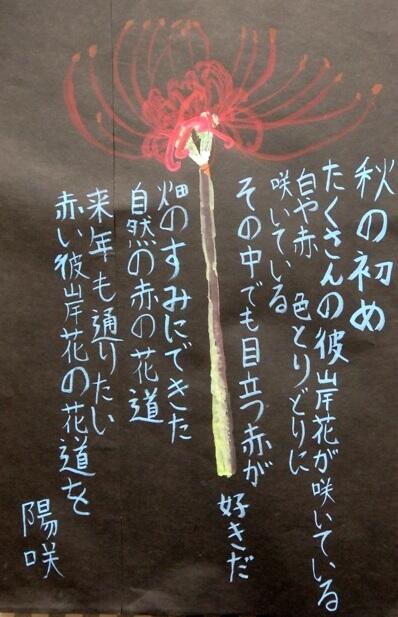 秋の初め
たくさんの彼岸花が咲いている
白や赤　色とりどりに
咲いている
その中でも目立つ赤が
好きだ
畑のすみにできた
自然の赤の花道
来年も通りたい
赤い彼岸花の花道を
陽咲